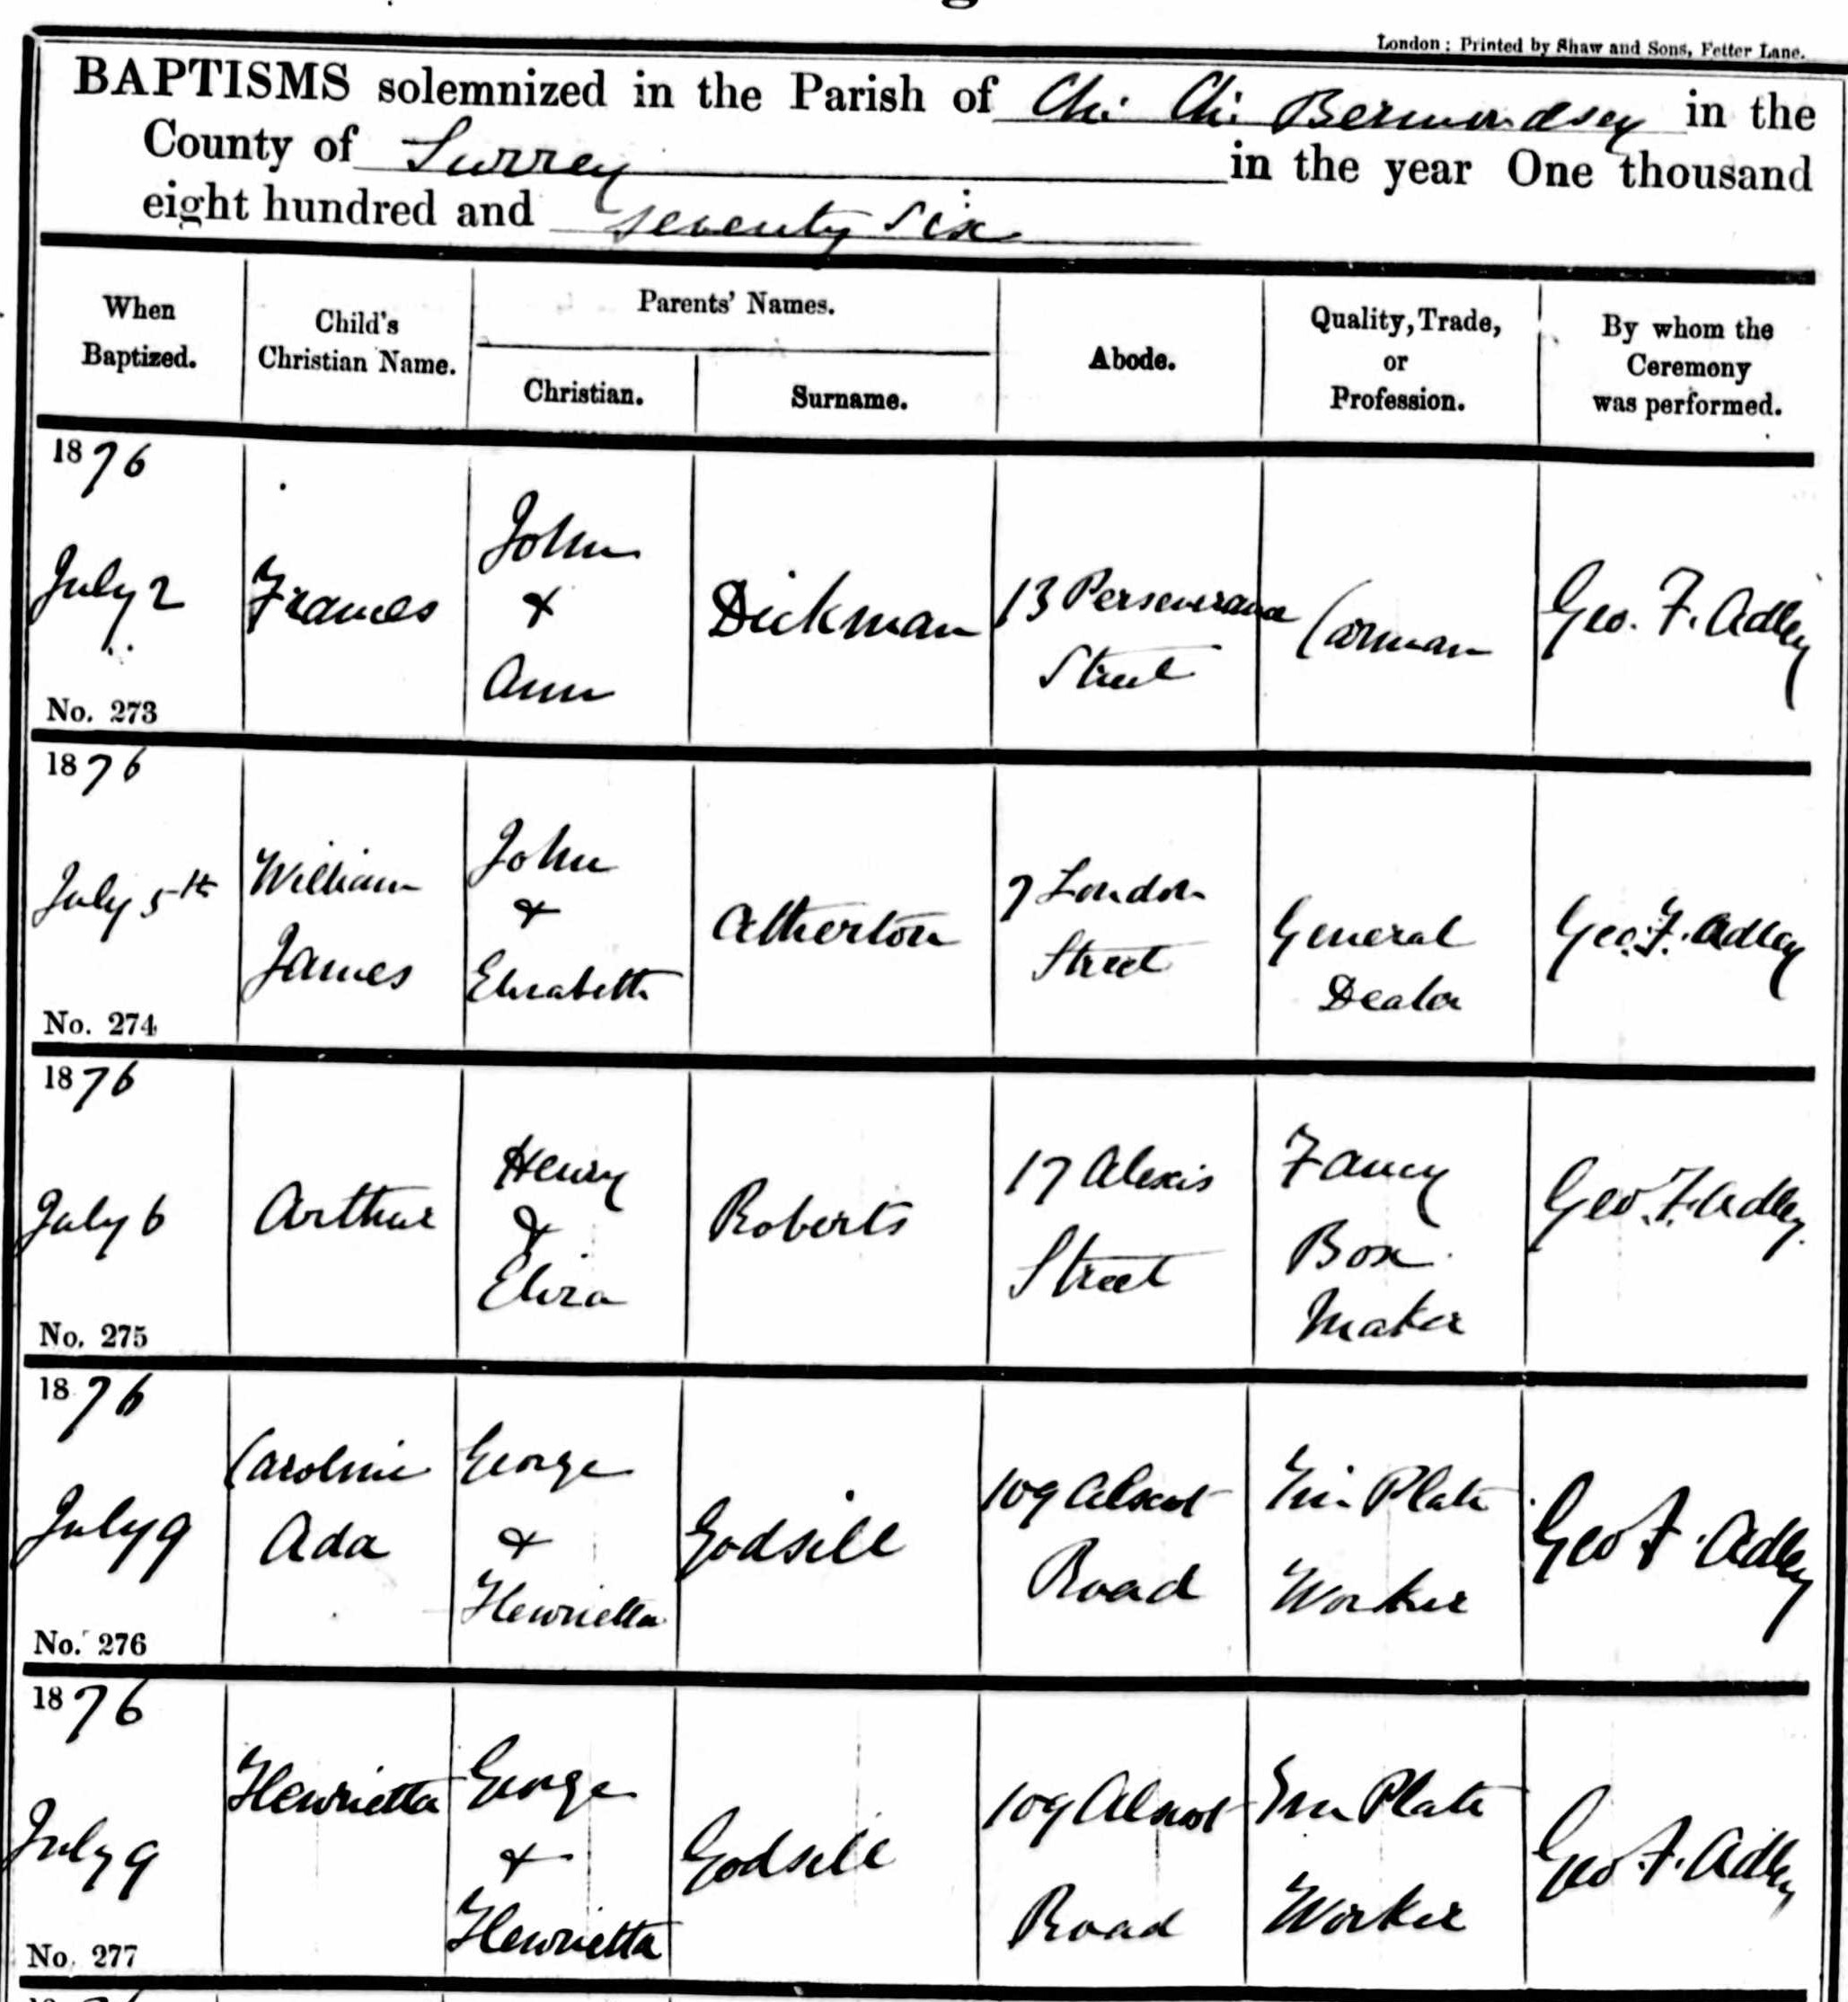 London: Printed by Shaw and Sons, Fetter Lane.
BAPTISMS solemnized in the Parish of Ch: Ch: Bermondsey in the
County of Surrey in the year One thousand
eight hundred and seventy six
When Baptized.
Child's Christian Name.
Parents' Names.
Christian.
Surname.
Abode.
Quality, Trade, or Profession.
By whom the Ceremony was performed.
1876
July 2
No. 273
Frances
John
&
Ann
Dickman
13 Perseverance
Street
Carman
Geo. F. Adley
1876
July 5th
No. 274
William
James
John
&
Elizabeth
Atherton
7 London
Street
General
Dealer
Geo. F. Adley
1876
July 6
No. 275
Arthur
Henry
&
Eliza
Roberts
17 Alexis
Street
Fancy
Box
Maker
Geo. F. Adley
1876
July 9
No. 276
Caroline
Ada
George
&
Henrietta
Godsell
109 Alscot
Road
Tin Plate
Worker
Geo F. Adley
1876
July 9
No. 277
Henrietta
George
&
Henrietta
Godsell
109 Alscot
Road
Tin Plate
Worker
Geo F. Adley